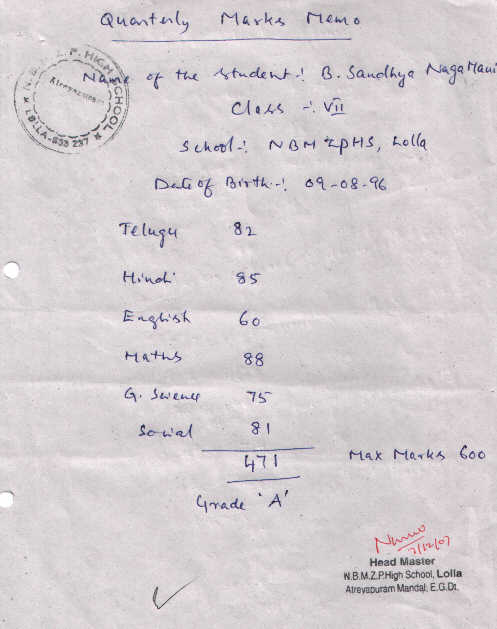 Quarterly Marks Memo
Name of the student :- B. Sandhya NagaMani
Class :- VII
School :- NBM ZPHS, Lolla
Date of Birth :- 09-08-96
Telugu 82
Hindi 85
English 60
Maths 88
G. Science 75
Social 81
471 Max Marks 600
Grade 'A'
7/12/07
Head Master
N.B.M.Z.P.High School, Lolla
Atreyapuram Mandal, E.G.Dt.
Z.P. HIGH SCHOOL
Atreyapuram
LOLLA-533 237